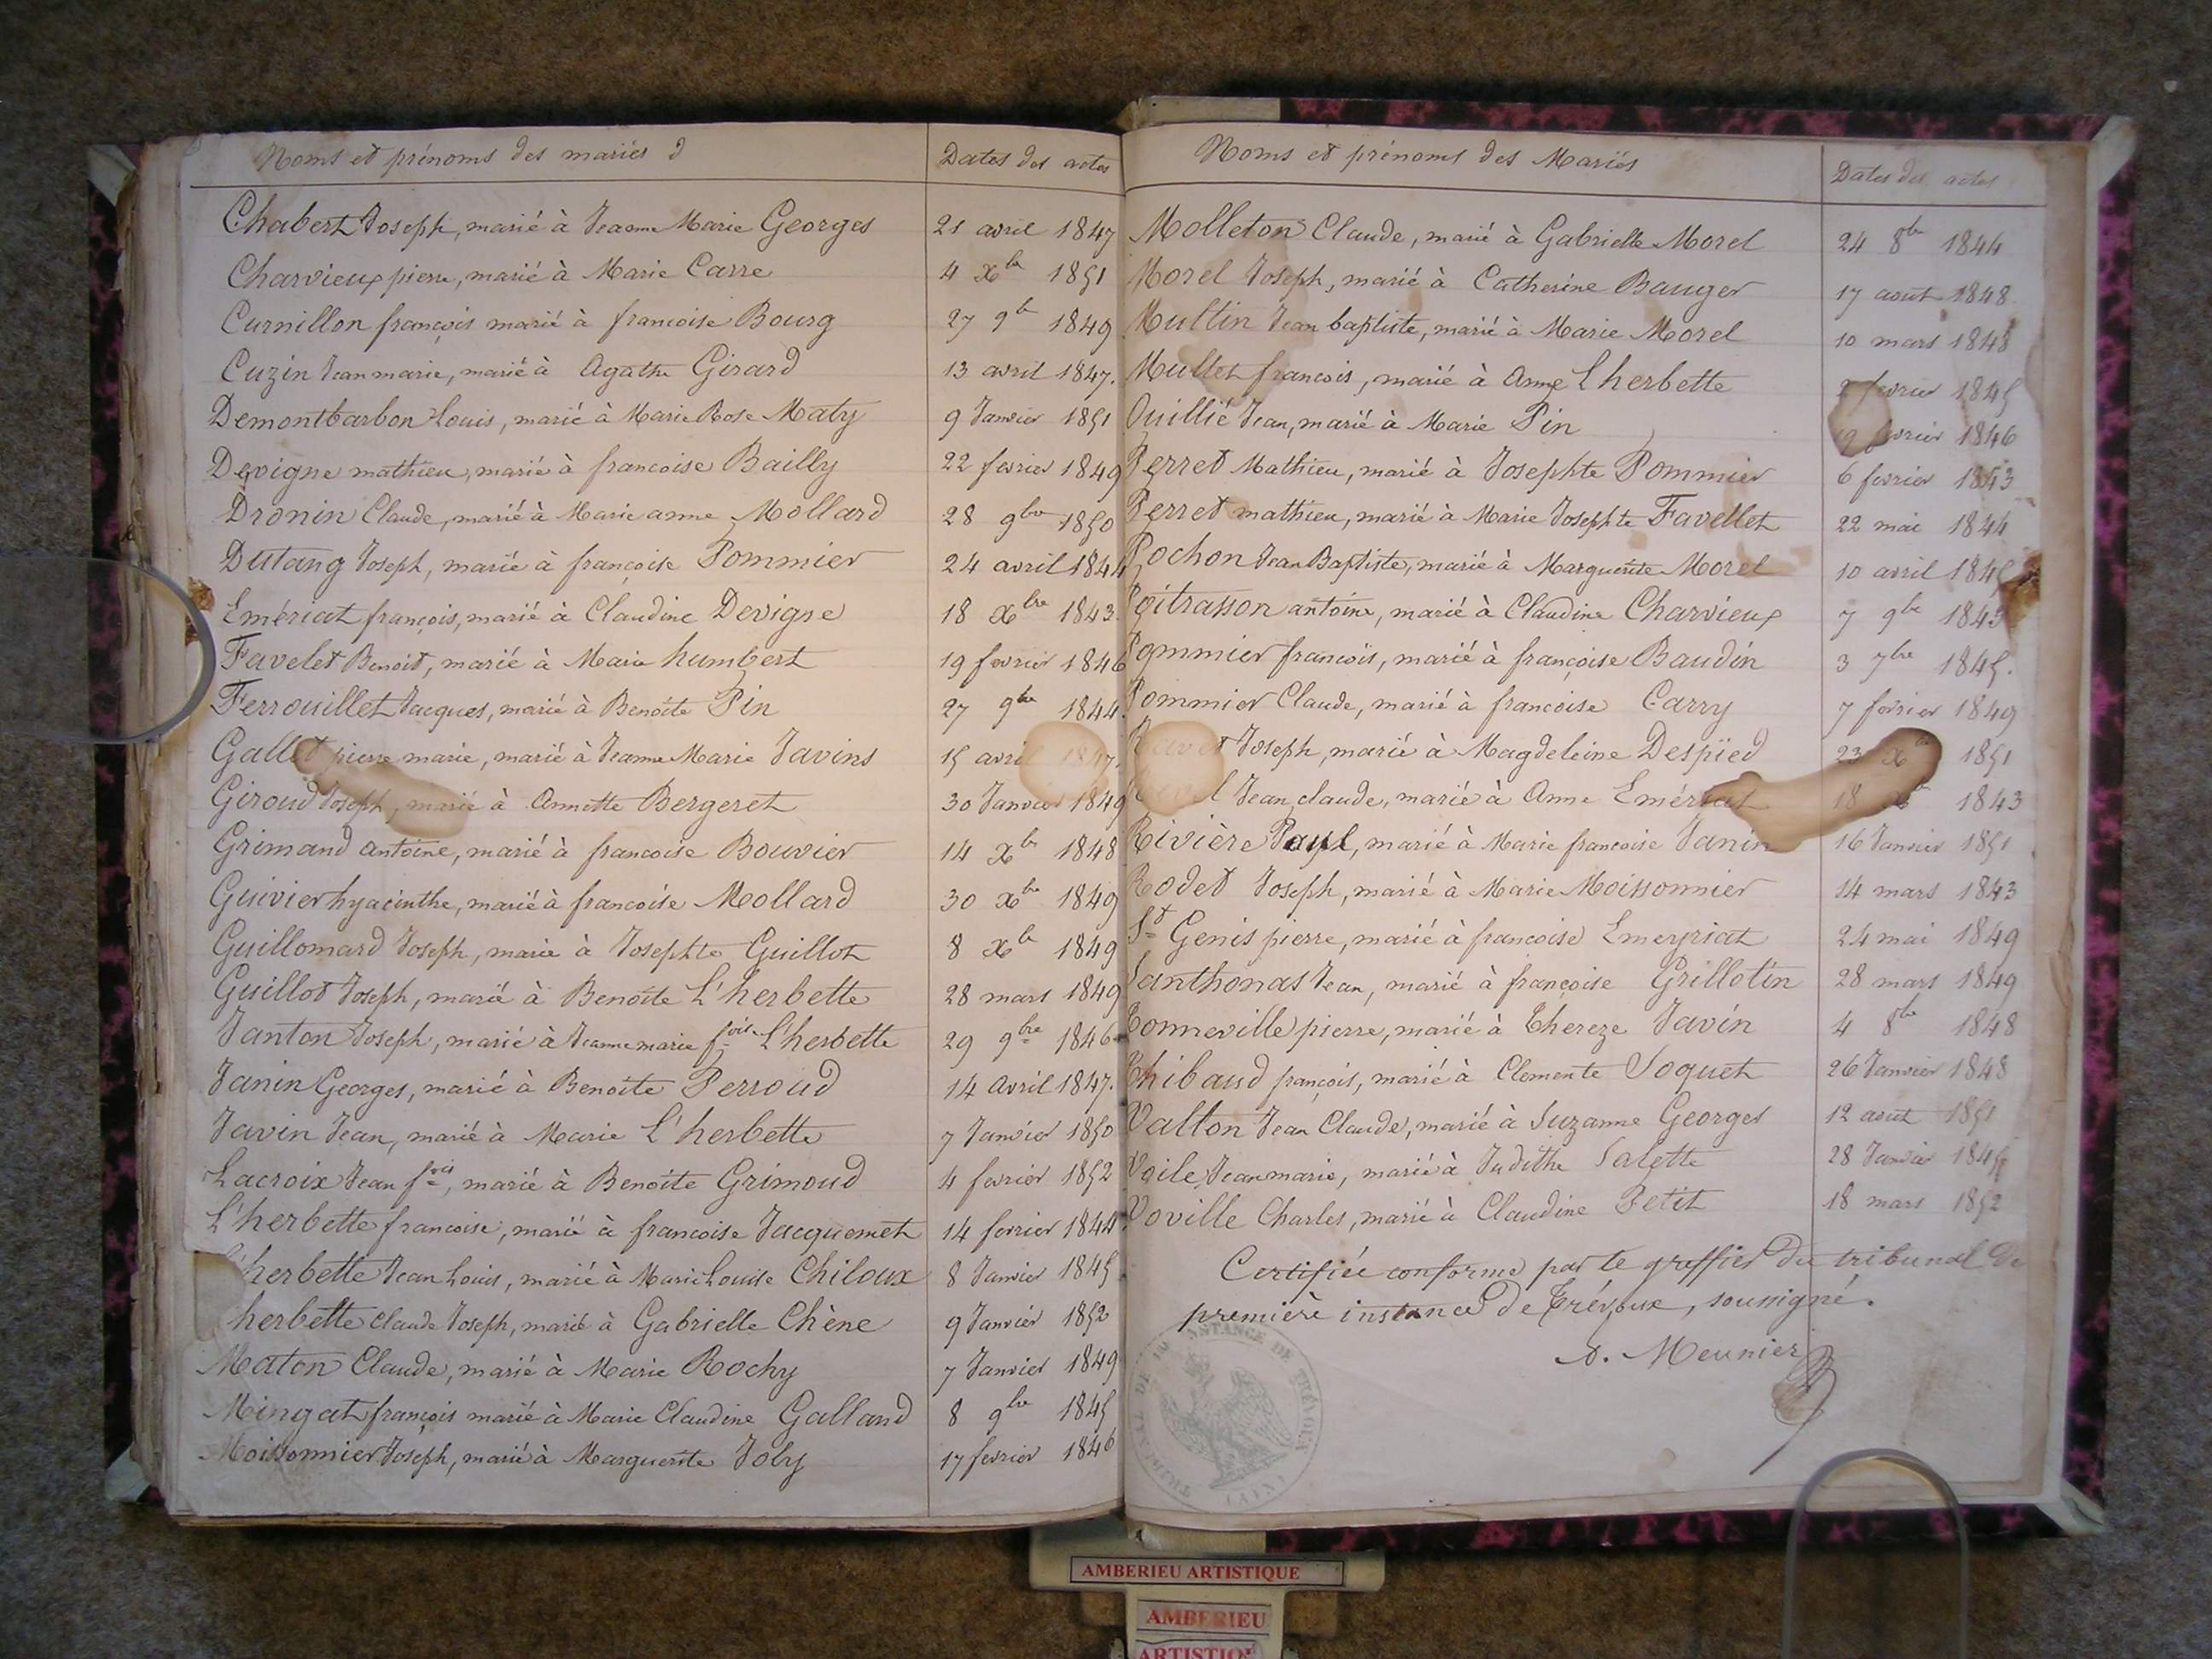 Noms et prénoms des mariés d
Dates des actes
Chabert Joseph, marié à Jeanne Marie Georges 21 avril 1847
Charvieux pierre, marié à Marie Carre 4 Xbre 1851
Curnillon françois marié à francoise Bourg 27 9bre 1849
Cuzin Jean marie, marié à Agathe Girard 13 avril 1847.
Demontbarbon Louis, marié à Marie Rose Maty 9 Janvier 1851
Devigne mathieu, marié à francoise Bailly 22 fevrier 1849
Dronin Claude, marié à Marie anne Mollard 28 9bre 1850
Dutang Joseph, marié à françoise Pommier 24 avril 1844
Emériat françois, marié à Claudine Devigne 18 Xbre 1843.
Favelet Benoit, marié à Marie humbert 19 fevrier 1846
Ferrouillet Jacques, marié à Benoite Pin 27 9bre 1844.
Gallet pierre marie, marié à Jeanne Marie Javins 15 avril 1847.
Giroud Joseph, marié à Annette Bergeret 30 Janvier 1849
Grimaud antoine, marié à francoise Bouvier 14 Xbre 1848
Guivier hyacinthe, marié à francoise Mollard 30 Xbre 1849
Guillomard Joseph, marié à Josephte Guillot 8 Xbre 1849
Guillot Joseph, marié à Benoite L'herbette 28 mars 1849
Janton Joseph, marié à Jeanne marie foise L'herbette 29 9bre 1846
Janin Georges, marié à Benoite Perroud 14 Avril 1847.
Javin Jean, marié à Marie L'herbette 7 Janvier 1850
Lacroix Jean fois, marié à Benoite Grimoud 4 fevrier 1852
L'herbette francoise, marié à francoise Jacquemet 14 fevrier 1844.
L'herbette Jean Louis, marié à Marie Louise Chiloux 8 Janvier 1845
herbette Claude Joseph, marié à Gabrielle Chène 9 Janvier 1852
Maton Claude, marié à Marie Rochy 7 Janvier 1849
Mingat françois marié à Marie Claudine Galland 8 9bre 1845
Moissonnier Joseph, marié à Marguerite Joly 17 fevrier 1846
Noms et prénoms des Mariés
Dates des actes
Molleton Claude, marié à Gabrielle Morel 24 8bre 1844
Morel Joseph, marié à Catherine Bauger 17 aout 1848
Multin Jean baptiste, marié à Marie Morel 10 mars 1848
Mullet francois, marié à Anne Lherbette 2 fevrier 1845
Ouillié Jean, marié à Marie Pin fevrier 1846
Perret Mathieu, marié à Josephte Pommier 6 fevrier 1843
Perret mathieu, marié à Marie Josephte Favellet 22 mai 1844
Pochon Jean Baptiste, marié à Marguerite Morel 10 avril 1845
Poitrasson antoine, marié à Claudine Charvieux 7 9bre 1843
Pommier francois, marié à françoise Baudin 3 7bre 1845.
Pommier Claude, marié à francoise Carry 7 fevrier 1849
Ravet Joseph, marié à Magdeleine Despied 23 Xbre 1851
Jean claude, marié à Anne Emériat 18 Xbre 1843
Rivière Paul, marié à Marie francoise Janin 16 Janvier 1851
Rodet Joseph, marié à Marie Moissonnier 14 mars 1843
St Genis pierre, marié à francoise Emeyriat 24 mai 1849
Santhonas Jean, marié à françoise Grillotin 28 mars 1849
Tonneville pierre, marié à Thereze Javin 4 8bre 1848
Thibaud françois, marié à Clemente Soquet 26 Janvier 1848
Valton Jean Claude, marié à Suzanne Georges 12 aout 1851
Voile Jean marie, marié à Judithe Salette 28 Janvier
Voville Charles, marié à Claudine Petit 18 mars 1852
Certifiée conforme par le greffier du tribunal de
première instance de Trévoux, soussigné.
A. Meunier
TRIBUNAL DE 1re INSTANCE DE TRÉVOUX
(AIN)
AMBERIEU ARTISTIQUE
AMBERIEU
ARTISTIQ